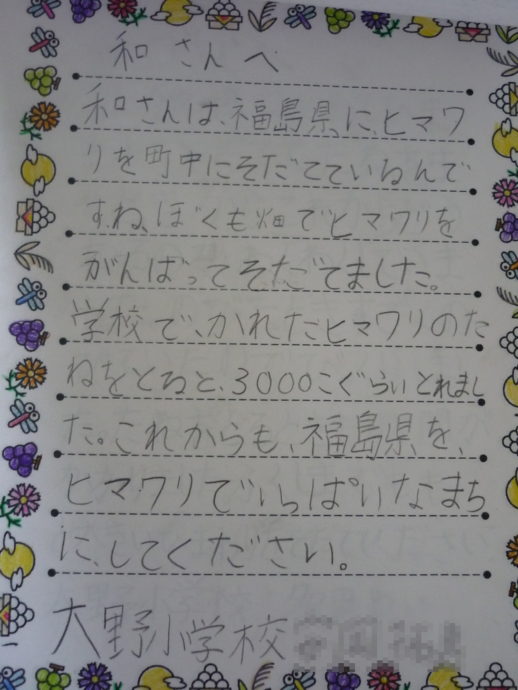 和さんへ
和さんは、福島県に、ヒマワ
リを町中にそだてているんで
すね、ぼくも畑でヒマワリを
がんばってそだてました。
学校で、かれたヒマワリのた
ねをとると、3000こぐらいとれまし
た。これからも、福島県を、
ヒマワリでいっぱいなまち
に、してください。
大野小学校